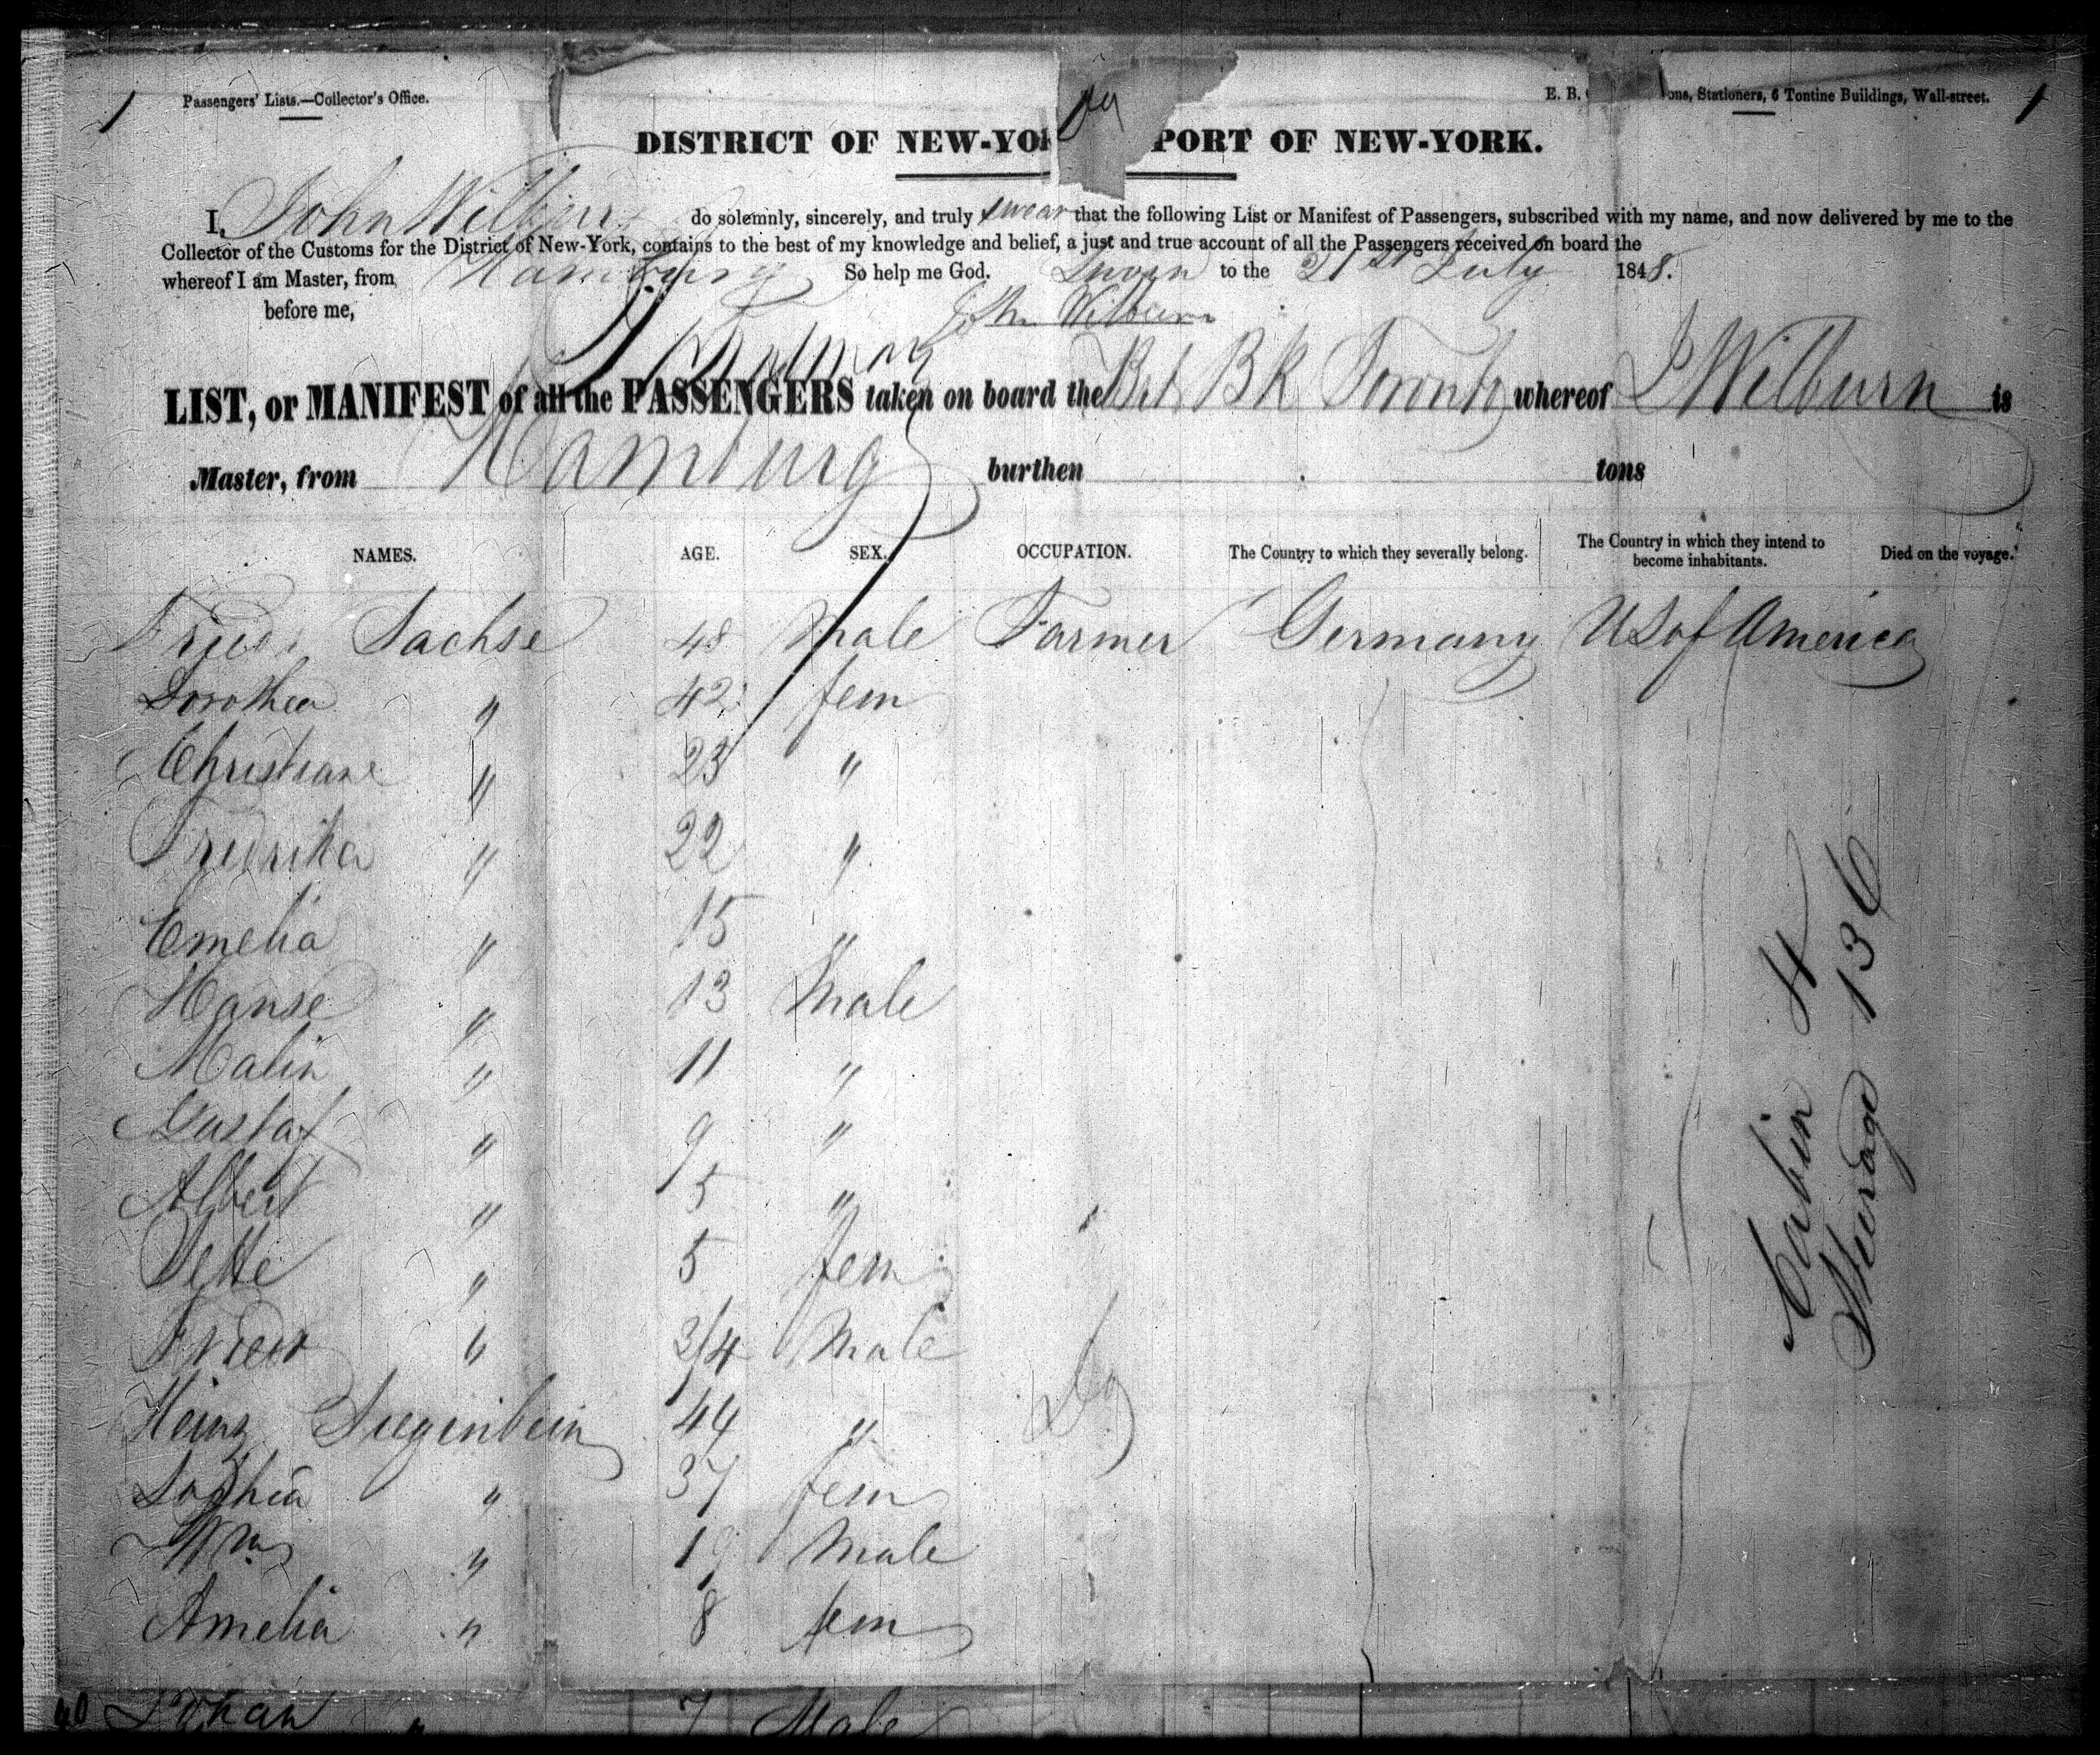 Passengers' Lists.—Collector's Office.
E. B. ons, Stationers, 6 Tontine Buildings, Wall-street.
DISTRICT OF NEW-YOR PORT OF NEW-YORK.
I, John Wilburn do solemnly, sincerely, and truly swear that the following List or Manifest of Passengers, subscribed with my name, and now delivered by me to the
Collector of the Customs for the District of New-York, contains to the best of my knowledge and belief, a just and true account of all the Passengers received on board the
whereof I am Master, from Hamburg So help me God. Sworn to the 21st July 1848.
before me, John Wilburn
LIST, or MANIFEST of all the PASSENGERS taken on board the Bk Toronto whereof J Wilburn is
Master, from Hamburg burthen tons
NAMES. AGE. SEX. OCCUPATION. The Country to which they severally belong. The Country in which they intend to become inhabitants. Died on the voyage.
Friedr Sachse 48 Male Farmer Germany US of America
Dorothea " 42 fem
Christiane " 23 "
Friedrika " 22 "
Emelia " 15 "
Hanse " 13 Male
Malin " 11 "
Gustaf " 9 "
Albert " 5 "
Jette " 5 fem
Friedr " 3/4 Male
Heinr Siegenbein 44 " Do
Sophia " 37 fem
Wm " 19 Male
Amelia " 8 fem
Johan " 7 Male
Cabin 4
Steerage 136